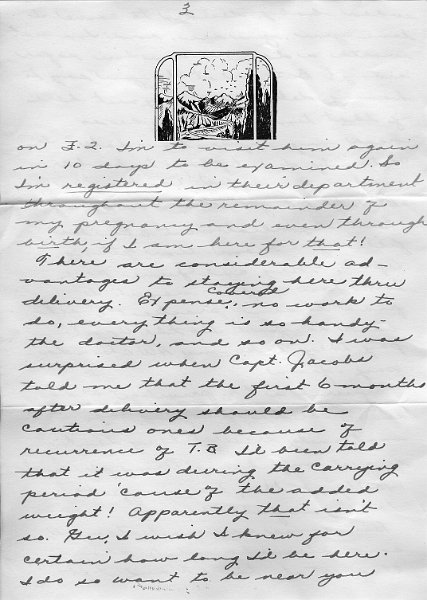 3
on F-2. I'm to visit them again
in 10 days to be examined. So
I'm registered in their department
throughout the remainder of
my pregnancy and even through
birth if I am here for that!
There are considerable ad-
vantages to staying here thru
delivery. Expense, no work to
do, everything is so handy -
the doctor, and so on. I was
surprised when Capt. Jacobs
told me that the first 6 months
after delivery should be
cautious ones because of
recurrence of T.B. I'd been told
that it was during the carrying
period 'cause of the added
weight! Apparently that isn't
so. Gee, I wish I knew for
certain how long I'd be here.
I do so want to be near you